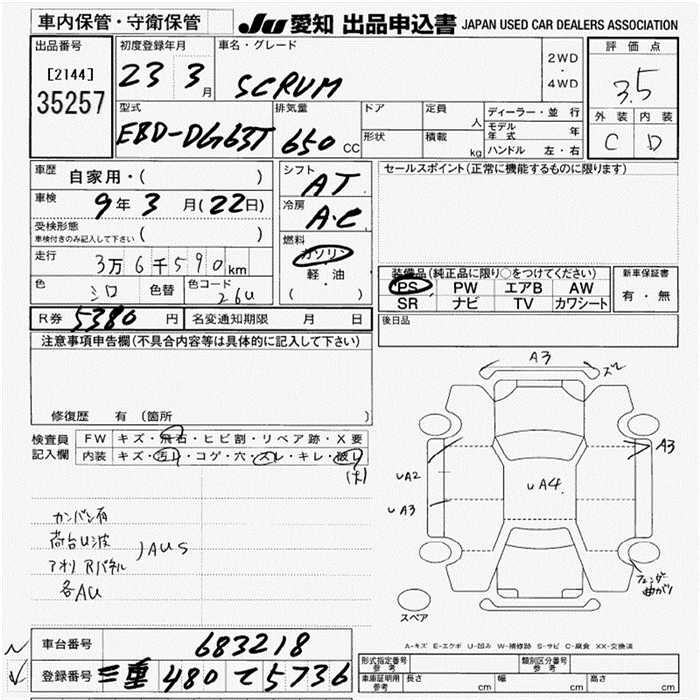 車内保管・守衛保管
JU 愛知 出品申込書 JAPAN USED CAR DEALERS ASSOCIATION
出品番号
[2144]
35257
初度登録年月
23 3月
車名・グレード
SCRUM
2WD
・
4WD
評価点
3.5
外装 内装
C D
型式
EBD-DG63T
排気量
650 CC
ドア
形状
定員 人
積載 kg
ディーラー・並行
モデル年式 年
ハンドル 左・右
車歴 自家用・( )
車検 9年 3月(22日)
受検形態
車検付きのみ記入して下さい ( )
走行 3万6千590km
色 シロ 色替 色コード 26U
シフト
AT
冷房
A・C
燃料
ガソリン
軽・油
( )
セールスポイント(正常に機能するものに限ります)
装備品(純正品に限り○をつけてください)
PS PW エアB AW
SR ナビ TV カワシート
新車保証書
有・無
R券 5380円 名変通知期限 月 日
後日品
注意事項申告欄(不具合内容等は具体的に記入して下さい)
修復歴 有 (箇所
検査員記入欄
FW キズ・飛石・ヒビ割・リペア跡・X要
内装 キズ・汚れ・コゲ・穴・スレ・キレ・破レ
(大)
カンバン有
荷台U波
アオリ Rパネル
各AU
A3
ズレ
A3
UA2
UA3
UA4
フェンダー
曲がり
スペア
A-キズ E-エクボ U-凹み W-補修跡 S-サビ C-腐食 XX-交換済
車台番号 683218
登録番号 三重 480 て 5736
形式指定番号
参考
類別区分番号
参考
車庫証明用
参考
長さ cm 幅 cm 高さ cm